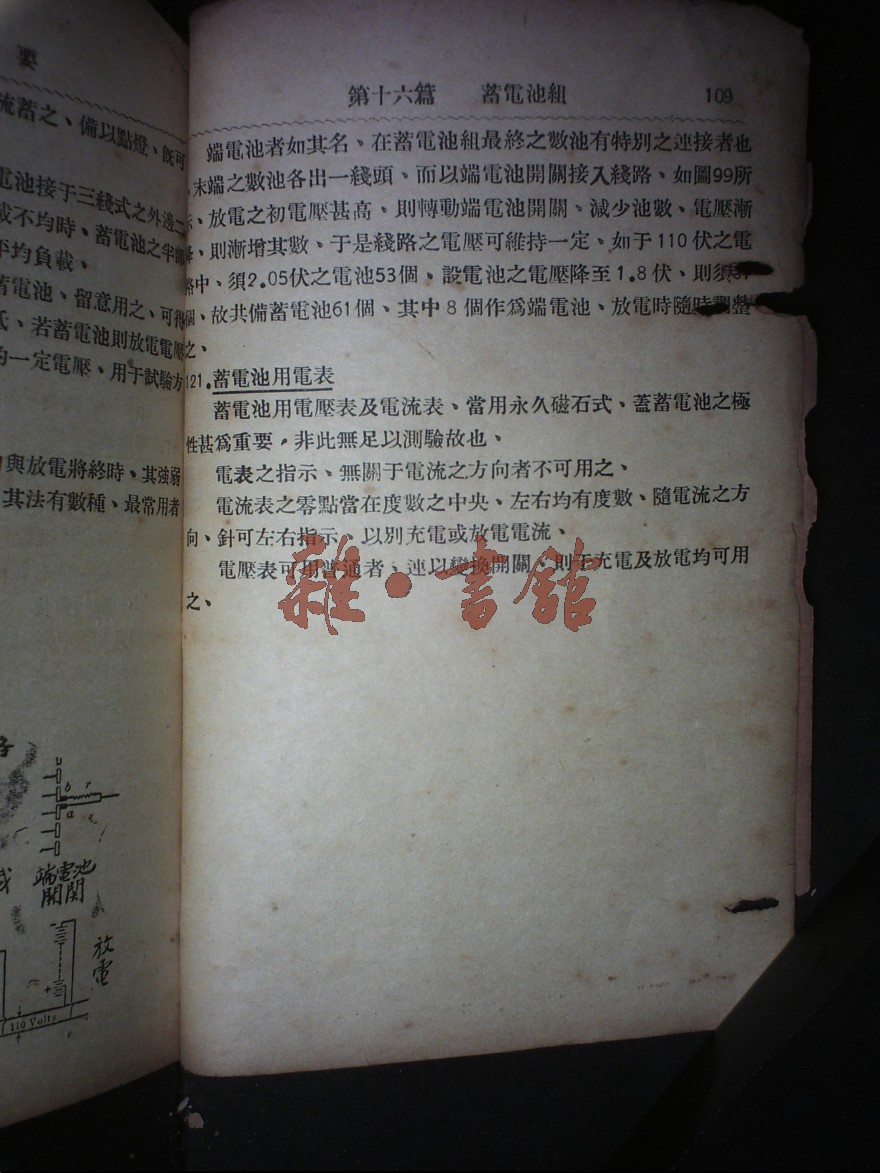 要
流蓄之、備以點燈、既可
電池接于三綫式之外邊二
載不均時、蓄電池之半部
平均負載、
蓄電池、留意用之、可得
氏、若蓄電池則放電電壓
的一定電壓、用于試驗方
與放電將終時、其強弱
其法有數種、最常用者
端電池
開關
放電
110 Volts
第十六篇 蓄電池組 109
端電池者如其名、在蓄電池組最終之數池有特別之連接者也
、末端之數池各出一綫頭、而以端電池開關接入綫路、如圖99所
示、放電之初電壓甚高、則轉動端電池開關、減少池數、電壓漸
降、則漸增其數、于是綫路之電壓可維持一定、如于110伏之電
路中、須2.05伏之電池53個、設電池之電壓降至1.8伏、則須
個、故共備蓄電池61個、其中8個作爲端電池、放電時隨時調整
之、
121.蓄電池用電表
蓄電池用電壓表及電流表、當用永久磁石式、蓋蓄電池之極
性甚爲重要，非此無足以測驗故也、
電表之指示、無關于電流之方向者不可用之、
電流表之零點當在度數之中央、左右均有度數、隨電流之方
向、針可左右指示、以別充電或放電電流、
電壓表可用普通者、連以變換開關、則于充電及放電均可用
之、
雜·書館